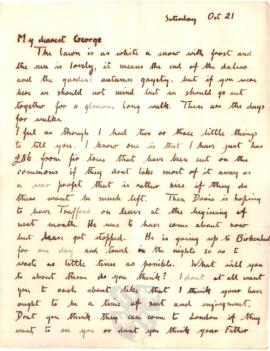 Saturday Oct 21
My dearest George
The lawn is as white a snow with frost and
the sun is lovely, it means the end of the dalias
and the gardens autumn gayety, but if you were
here we should not mind but we should go out
together for a glorious long walk. These are the days
for walks.
I feel as though I had two or three little things
to tell you. I know one is that I have just had
£86 from for trees that have been cut on the
commons if they dont take most of it away as
a war profit that is rather nice if they do
there wont be much left. Then David is hoping
to have Trafford on leave at the beginning of
next month. He was to have come about now
but leave got stopped. He is going up to Birkenhead
for one day and travel in the nights so as to
waste as little time as possible. What will you
do about them do you think? I dont at all want
you to rush about like that I think your leave
ought to be a time of rest and enjoyment.
Dont you think they can come to London if they
want to see you or dont you think your Father